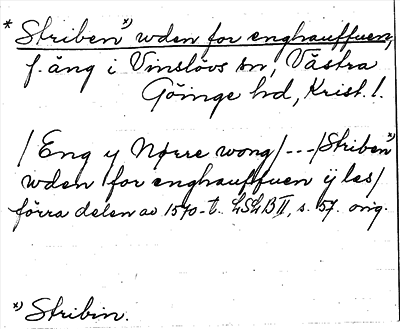 * Striben*) wden for enghauffuen,
f. äng i Vinslövs sn, Västra
Göinge hd, Krist. l.
/Eng y Nørre wong/---/Striben*)
wden for enghauffuen ÿ les/
förra delen av 1570-t. LSLB II, s. 57. orig.
*) Stribin.